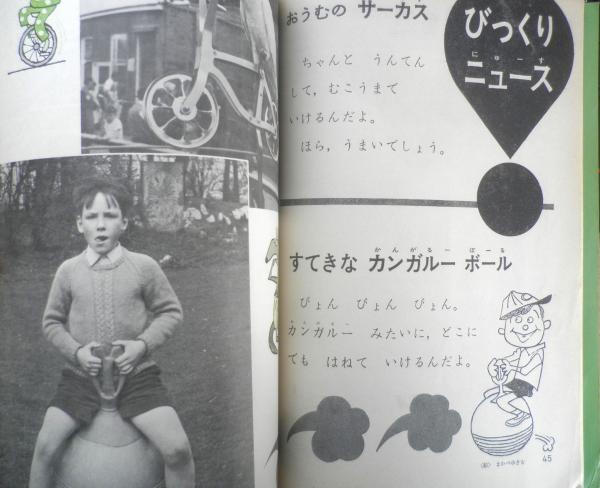 びっくり
ニュース
にゅーす
おうむの サーカス
ちゃんと うんてん
して，むこうまで
いけるんだよ。
ほら，うまいでしょう。
かんがるー ぼーる
すてきな カンガルー ボール
ぴょん ぴょん ぴょん。
カンガルー みたいに，どこに
でも はねて いけるんだよ。
45